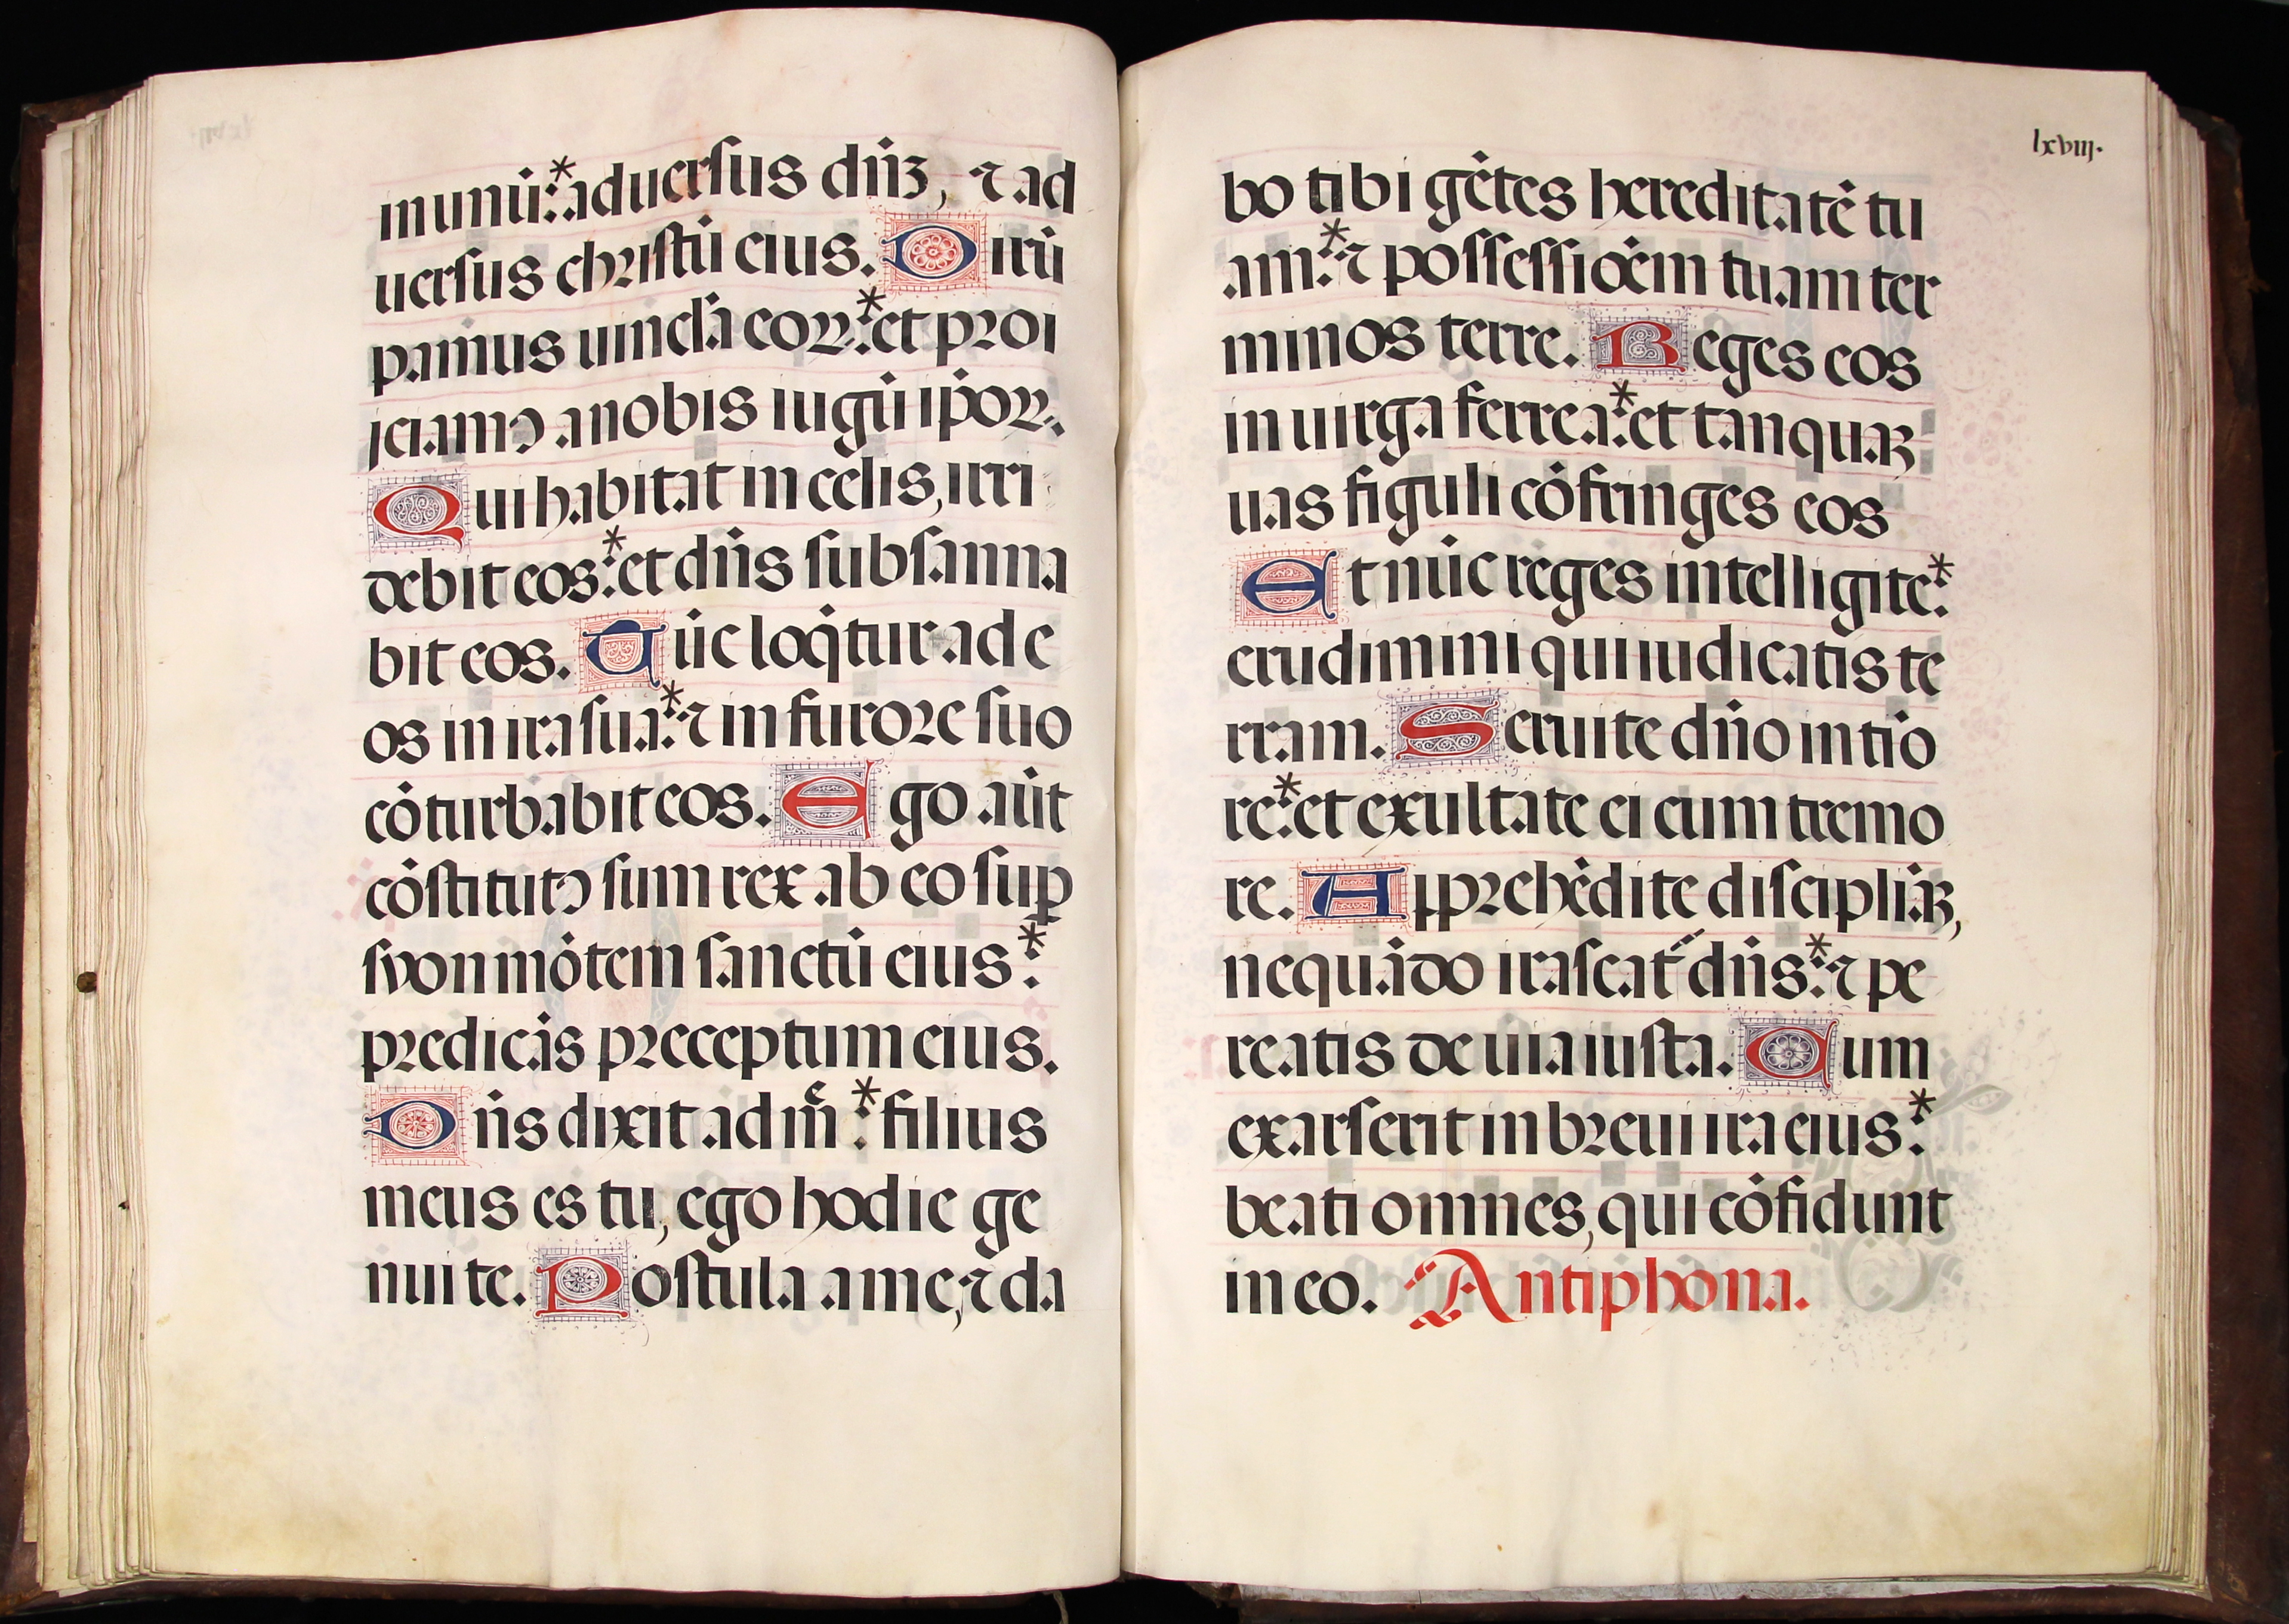 in unū:* aduersus dn̄ꝫ, ⁊ ad
uersus christū eius. Dirū
pamus uincl'a eoꝝ:* et proi
jciamꝰ a nobis iugū ip̄oꝝ.
Qui habitat in celis, irri
debit eos:* et dn̄s subsanna
bit eos. Tūc loq̇tur ad e
os in ira sua:* ⁊ in furore suo
cōturbabit eos. Ego aūt
cōstitutꝰ sum rex ab eo suꝑ
syon mōtem sanctū eius:*
predicās preceptum eius.
Dn̄s dixit ad mē:* filius
meus es tu, ego hodie ge
nui te. Postula a me, ⁊ da
lxviij.
bo tibi gētes hereditatē tu
am:* ⁊ possessiōem tuam ter
minos terre. Reges eos
in uirga ferrea:* et tanquaꝫ
uas figuli cōfringes eos
Et nūc reges intelligite:*
erudimini qui iudicatis te
rram. Seruite dn̄o in tīo
re:* et exultate ei cum tremo
re. Apprehēdite discipliāꝫ,
nequādo irascat᷑ dn̄s:* ⁊ pe
reatis de uia iusta. Cum
exarserit in breui ira eius:*
beati omnes, qui cōfidunt
in eo. Antiphona.